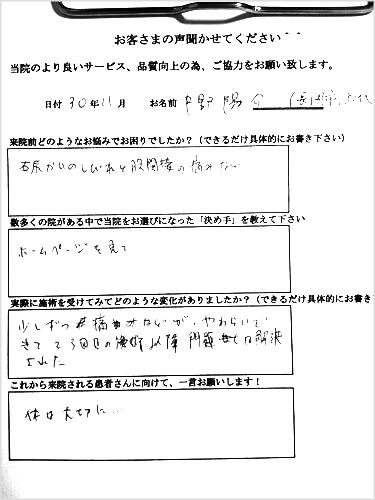 お客さまの声聞かせてください^^
当院のより良いサービス、品質向上の為、ご協力をお願い致します。
日付 30年11月 お名前
来院前どのようなお悩みでお困りでしたか?(できるだけ具体的にお書き下さい)
のしびれと股関接の痛みなど
数多くの院がある中で当院をお選びになった「決め手」を教えて下さい
ホームページを見て
実際に施術を受けてみてどのような変化がありましたか?(できるだけ具体的にお書き
少しずつ 痛みなどが、やわらいで
きて 3回目の施術以降 問題なく解決
された
これから来院される患者さんに向けて、一言お願いします!
体は大切に…